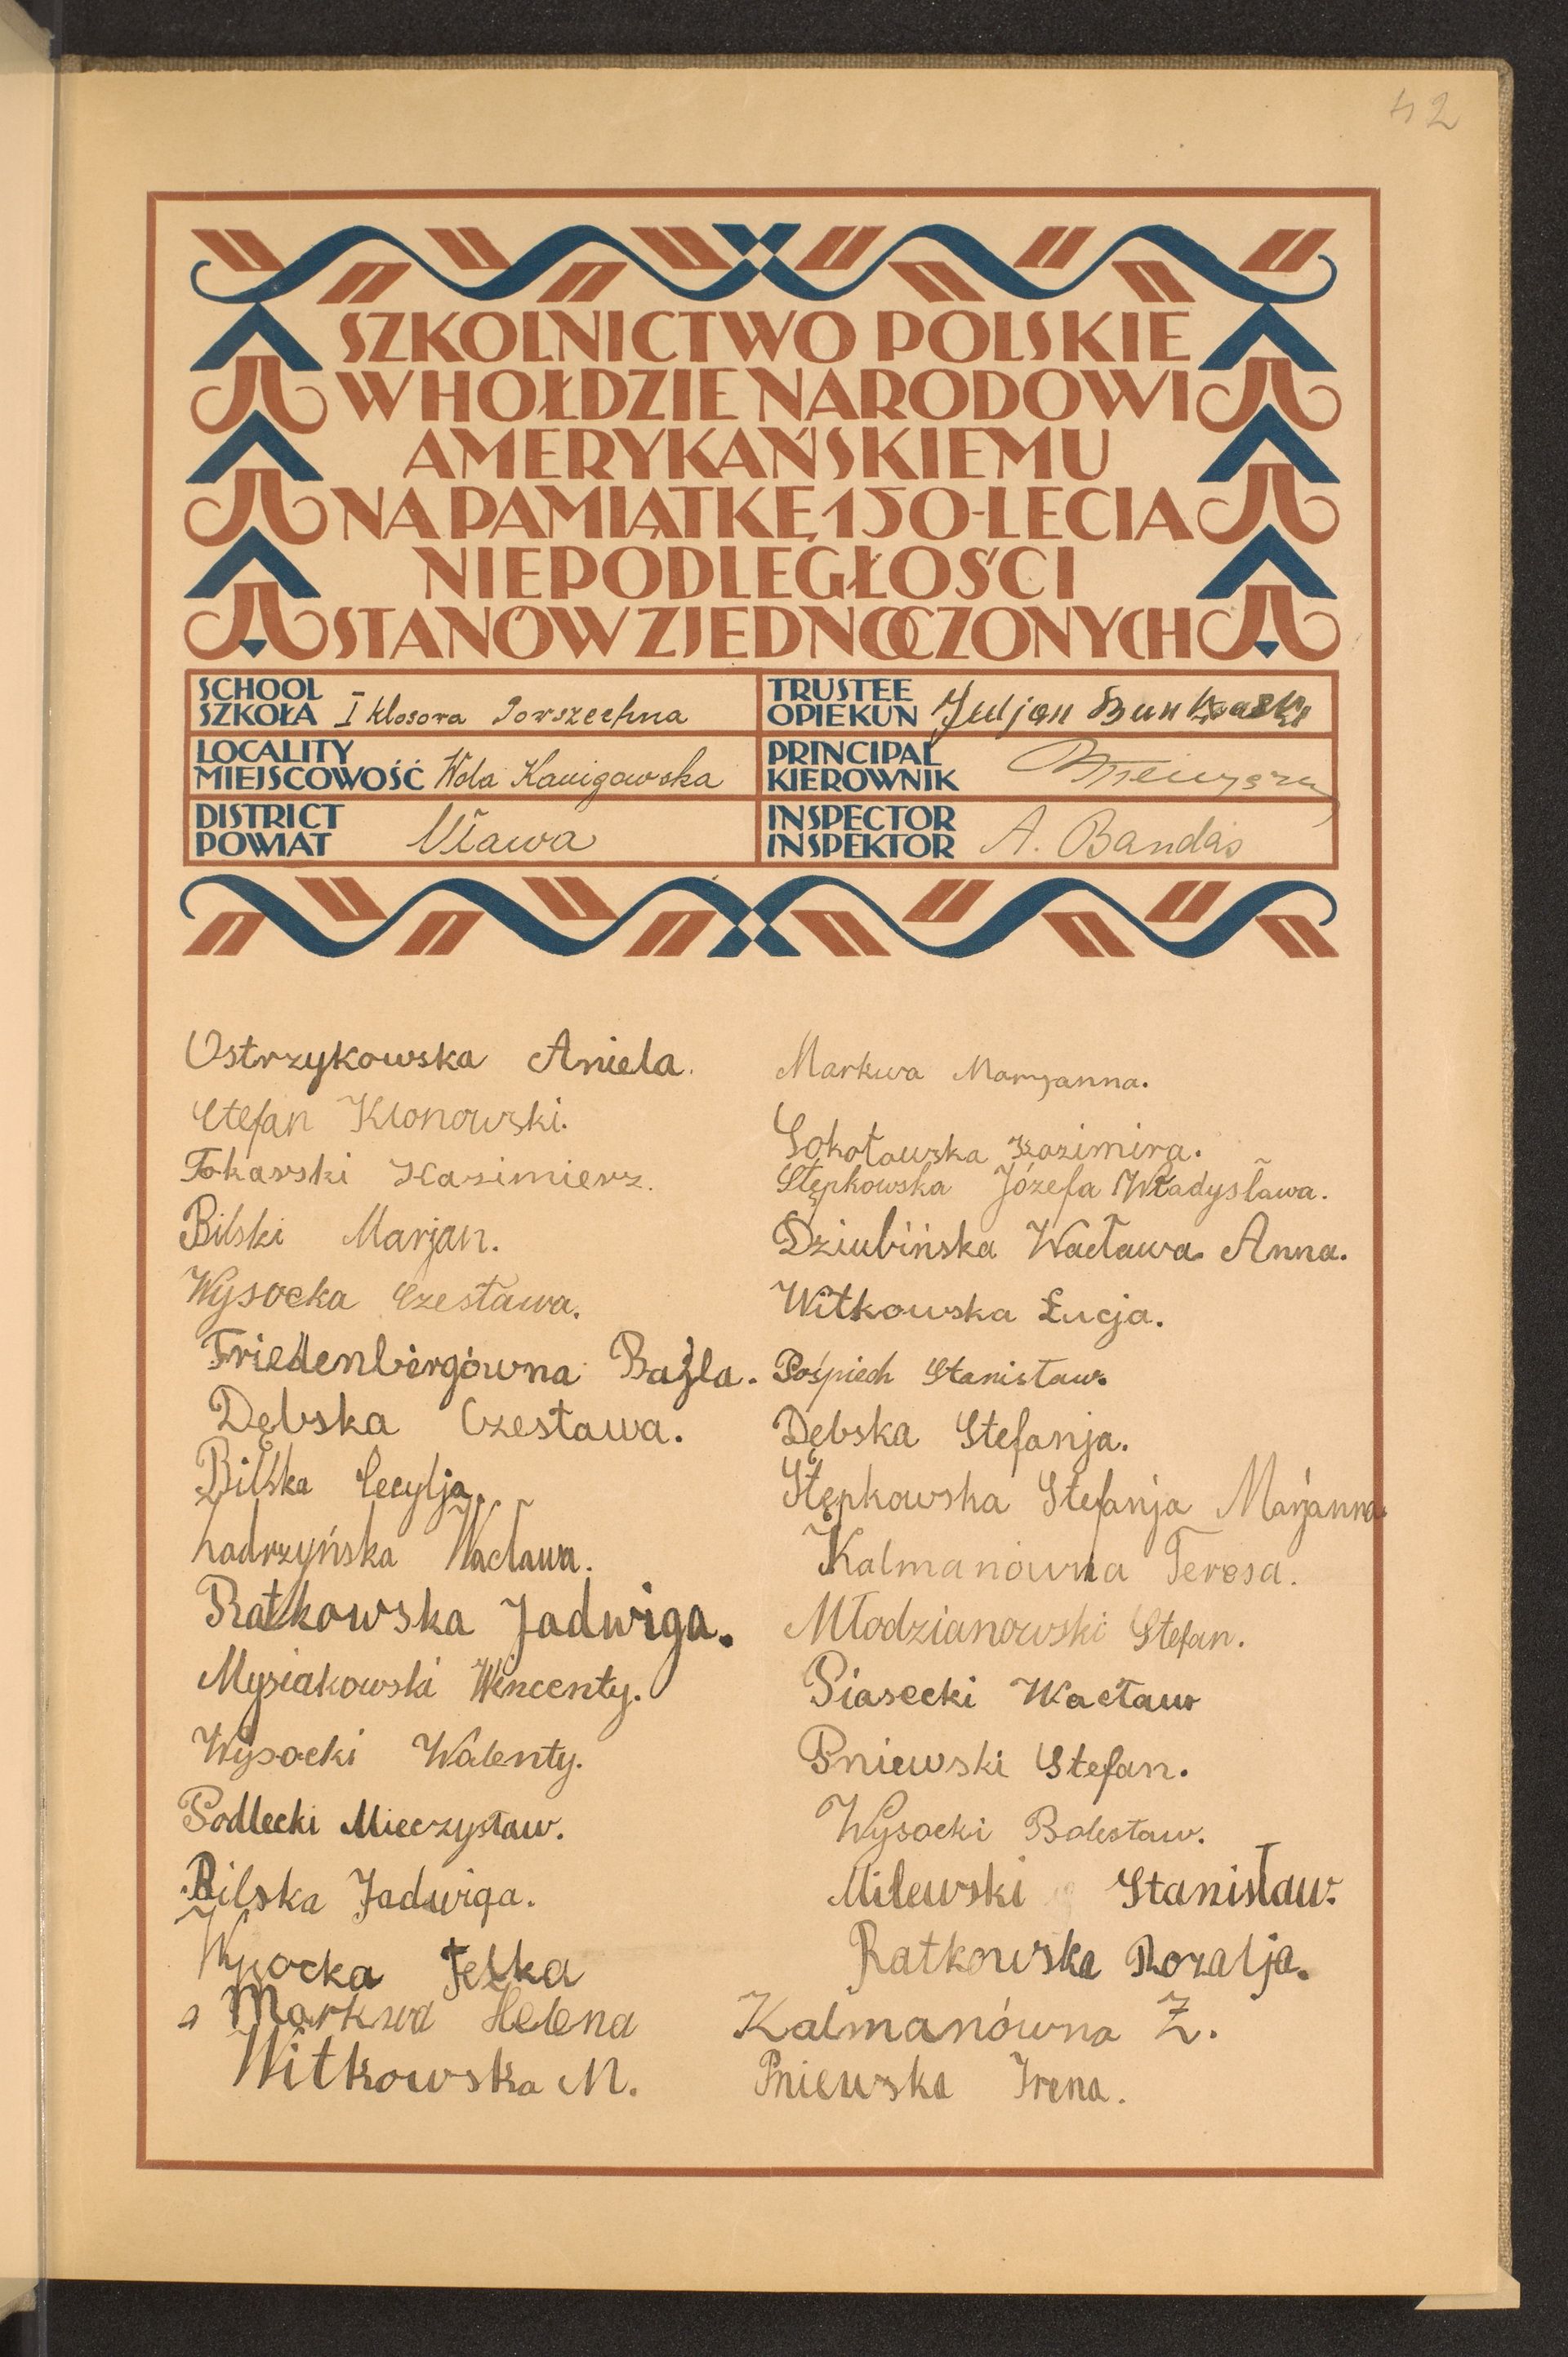 42
SZKOLNICTWO POLSKIE
W HOŁDZIE NARODOWI
AMERYKAŃSKIEMU
NA PAMIĄTKĘ 150-LECIA
NIEPODLEGŁOŚCI
STANÓW ZJEDNOCZONYCH
SCHOOL
SZKOŁA I klasowa Powszechna
TRUSTEE
OPIEKUN Juljan
LOCALITY
MIEJSCOWOŚĆ Wola Kanigowska
PRINCIPAL
KIEROWNIK
DISTRICT
POWIAT Mława
INSPECTOR
INSPEKTOR A. Bandas
Ostrzykowska Aniela.
Stefan Klonowski.
Tokarski Kazimierz.
Bilski Marjan.
Wysocka Czesława.
Friedenbergówna Bajla.
Dębska Czesława.
Bilska Cecylja.
Wacława.
Ratkowska Jadwiga.
Mysiakowski Wincenty.
Wysocki Walenty.
Podlecki Mieczysław.
Bilska Jadwiga.
Wysocka
Markwa Helena
Witkowska M.
Markwa Maryanna.
Sokołowska Kazimira.
Stępkowska Józefa Władysława.
Dziubińska Wacława Anna.
Witkowska Łucja.
Pośpiech Stanisław.
Dębska Stefanja.
Stępkowska Stefanja Marjanna
Kalmanówna Teresa.
Młodzianowski Stefan.
Piasecki Wacław
Pniewski Stefan.
Wysocki Bolesław.
Milewski Stanisław.
Ratkowska Rozalja.
Kalmanówna Z.
Pniewska Irena.